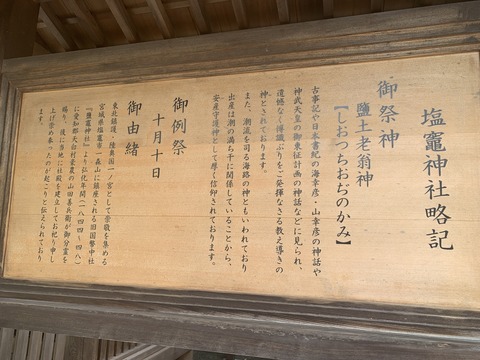 塩竈神社略記
御祭神
鹽土老翁神
【しおつちおぢのかみ】
古事記や日本書紀の海幸彦・山幸彦の神話や
神武天皇の御東征計画の神話などに見られ、
遺憾なく博識ぶりをご発揮なさる教え導きの
神とされております。
また、潮流を司る海路の神ともいわれており
出産は潮の満ち干に関係していることから、
安産守護神として厚く信仰されております。
御例祭
十月十日
御由緒
東北鎮護・陸奥国一ノ宮として崇敬を集める
宮城県塩竈市一森山に鎮座される旧国幣中社
『鹽竈神社』より弘化年間（一八四四～四八）
に愛知郡天白村豪農の山田善兵衛が御分霊を
賜り、後に当地に社殿を建立してお祀り申し
上げ崇め奉ったのが起こりと伝えられており
ます。